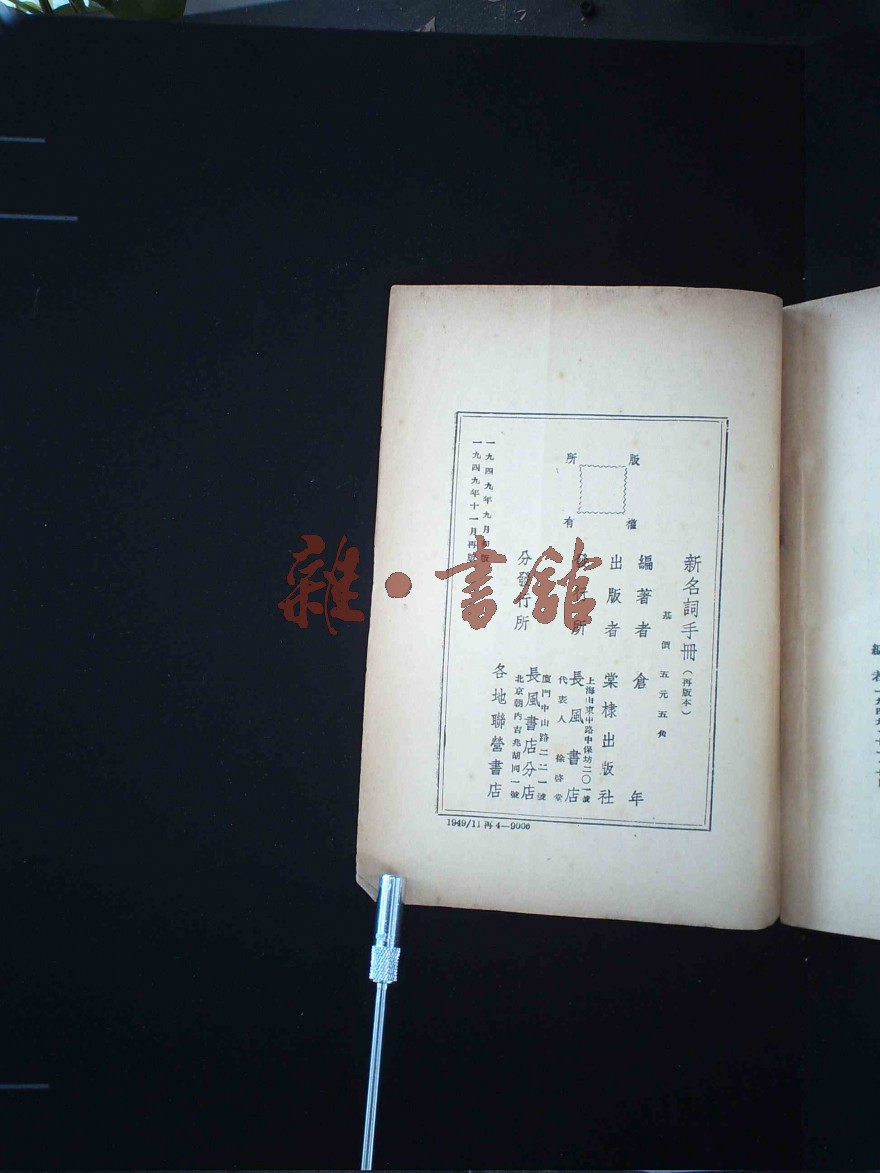 新名詞手冊(再版本)
基價 五元五角
編著者 倉年
出版者 棠棣出版社
上海山東中路中保坊二〇一號
發行所 長風書店
代表人 徐啓堂
廈門中山路二二一號
分發行所 長風書店分店
北京朝內吉兆胡同一號
各地聯營書店
版權所有
一九四九年九月初版
一九四九年十一月再版
1949/11再4—9000
雜·書館